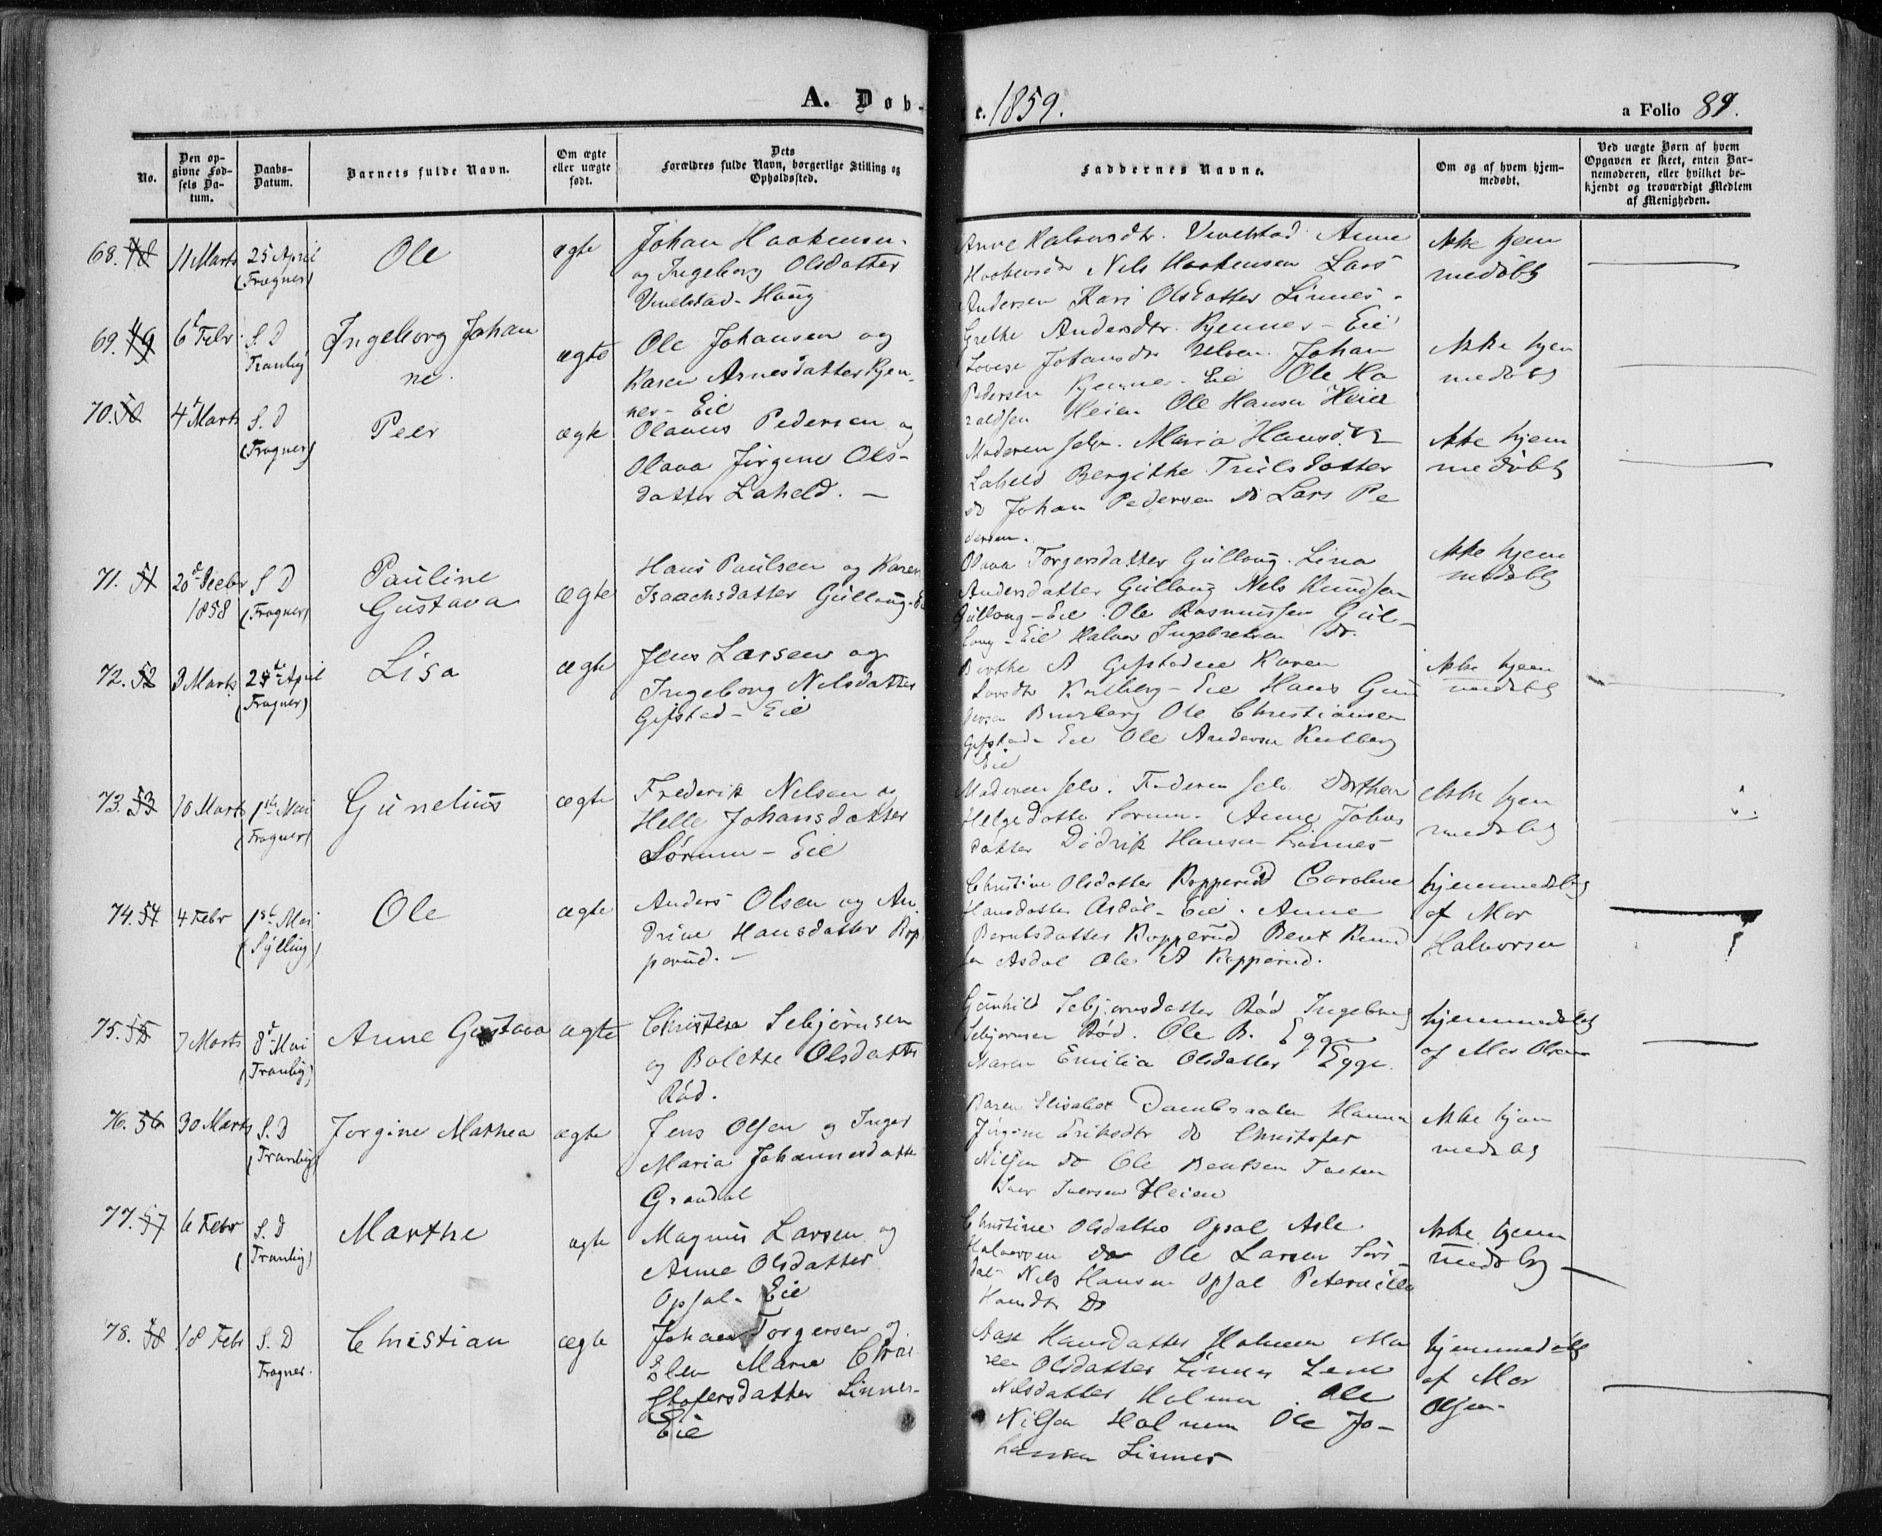 A. Døb-
e. 1859.
a Folio 89.
No.
Den op-
givne Fød-
sels Da-
tum.
Daabs-
Datum.
Barnets fulde Navn.
Om ægte
eller uægte
født.
Dets
Forældres fulde Navn, borgerlige Stilling og
Opholdssted.
Faddernes Navne.
Om og af hvem hjem-
medøbt.
Ved uægte Børn af hvem
Opgaven er skeet, enten Bar-
nemoderen, eller hvilket be-
kjendt og troværdigt Medlem
af Menigheden.
68. 48
11 Marts
25 April
(Fragner)
Ole
ægte
Johan Haakensen
og Ingeborg Olsdatter
Vivelstad-Haug
Anne Halvorsdtr. Vivelstad Anne
Haakensdtr Nils Haakensen Lars
Andersen Kari Olsdatter Linnes.
Ikke hjem
medøbt
69. 49
6t Febr.
S. D
Tranby
Ingeborg Johan
ne.
ægte
Ole Johansen og
Karen Arnesdatter Kjen-
ner- Eie
Grethe Andersdtr. Kjenner- Eie
Lovise Johansdtr Ulven. Johan
Petersen Kjenner- Eie Ole Ha
raldsen Heien Ole Hansen Heier
Ikke hjem
medøbt
70. 50
4t Marts
S. D
(Fragner)
Peer
ægte
Olavus Pedersen og
Olava Jørgine Ols-
datter Laheld. -
Moderen selv. Maria Hansdtr
Laheld Bergithe Trulsdatter
do Johan Pedersen do Lars Pe
dersen.
Ikke hjem
medøbt
71. 51
20de Decbr
1858
S D
(Fragner)
Pauline
Gustava
ægte
Hans Paulsen og Karen
Isaachsdatter Gullaug-Eie
Olava Torgersdatter Gullaug. Lina
Andersdatter Gullaug Nils Knudsen
Gullaug-Eie. Ole Rasmussen Gul-
laug-Eie Halvor Ingebretsen do.
Ikke hjem
medøbt
72. 52
3 Marts
25de April
(Fragner)
Lisa
ægte
Jens Larsen og
Ingeborg Nilsdatter
Gifstad- Eie
Berthe A Gifstadeie Karen
Larsdtr Kulberg- Eie Hans Gun
dersen Bursberg Ole Christiansen
Gifstad- Eie Ole Andersen Kulberg
Eie
Ikke hjem
medøbt
73. 53
10 Marts
1ste Mai
(Fragner)
Gunelius
ægte
Frederik Nilsen og
Helle Johansdatter
Sørum- Eie
Moderen selv. Faderen selv Dorthea
Helgedatter Sørum. Anne Johns
datter Didrik Hansen Linnes
Ikke hjem
medøbt
74. 54
4 Febr
1ste Mai
(Sylling)
Ole
ægte
Anders Olsen og An
drine Hansdatter Kop
perud. -
Christine Olsdatter Kopperud Caroline
Hansdatter Asdøl- Eie. Anne
Berntsdatter Kopperud Bent Knud
sen Asdøl Ole A Kopperud.
hjemmedøbt
af Mor
Halvorsen
75. 55
7 Marts
8t Mai
(Tranby)
Anne Gustava
ægte
Christen Sebjørnsen
og Bolette Olsdatter
Rød.
Gunhild Sebjørnsdatter Rød Ingeborg
Sebjørnsen Rød. Ole B. Egge
Maren Emilia Olsdatter Egge.
hjemmedøbt
af Mor Olsen
76. 56
30 Marts
S. D
(Tranby)
Jorgine Mathea
ægte
Jens Olsen og Inger
Maria Johannesdatter
Grøndal
Karen Elisabet Dambraaten Hanna
Jørgine Eriksdtr do Christofer
Nilsen do Ole Bentsen Tveten
Iver Iversen Heien
Ikke hjem
medøbt
77. 57
6 Febr
S. D
(Tranby)
Marthe
ægte
Magnus Larsen og
Anne Olsdatter
Opsal- Eie
Christine Olsdatter Opsal Asle
Halvorsen do Ole Larsen Sørs
dal- Nils Hansen Opsal Peternille
Hansdtr do
Ikke hjem
medøbt
78. 58
18 Febr
S. D
Fragner.
Christian
ægte
Johan Torgersen og
Elen Marie Chri
stofersdatter Linnes-
Eie
Aase Hansdatter Holmen Ma
ren Olsdatter Linnes Lene
Nilsdatter Holmen Ole
Nilsen Holmen Ole Jo-
hansen Linnes
hjemmedøbt
af Mor
Olsen.